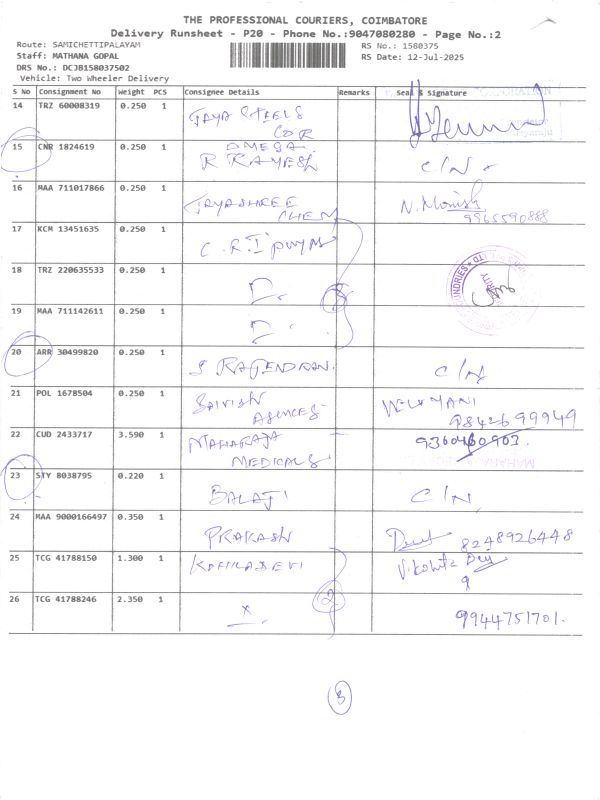 THE PROFESSIONAL COURIERS, COIMBATORE
Delivery Runsheet - P20 - Phone No.:9047080280 - Page No.:2
Route: SAMICHETTIPALAYAM RS No.: 1580375
Staff: MATHANA GOPAL RS Date: 12-Jul-2025
DRS No.: DCJB158037502
Vehicle: Two Wheeler Delivery
S No Consignment No Weight PCS Consignee Details Remarks Seal & Signature
14 TRZ 60008319 0.250 1
JAYA STEELS
COR
15 CNR 1824619 0.250 1 OMEGA
R RAJESH C/N
16 MAA 711017866 0.250 1
JAYASHREE N. Manish
CHEM 9965590888
17 KCM 13451635 0.250 1
C.R.I pumps
18 TRZ 220635533 0.250 1
19 MAA 711142611 0.250 1
20 ARR 30499820 0.250 1
S RAJENDRAN. C/N
21 POL 1678504 0.250 1
AGENCES 9842699949
22 CUD 2433717 3.590 1 MAHARAJA
MEDICALS
23 STY 8038795 0.220 1
BALAJI C/N
24 MAA 9000166497 0.350 1
PRAKASH 8248926448
25 TCG 41788150 1.300 1 KOKILADEVI
26 TCG 41788246 2.350 1
9944751701.
3